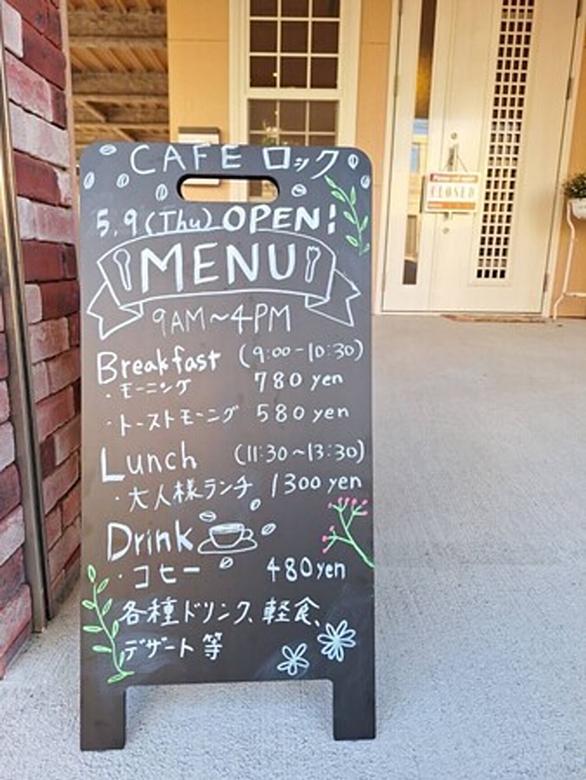 CAFE ロック
5.9(Thu) OPEN!
MENU
9AM~4PM
Breakfast (9:00-10:30)
・モーニング 780 yen
・トーストモーニング 580 yen
Lunch (11:30~13:30)
・大人様ランチ 1300 yen
Drink
・コヒー 480 yen
各種ドリンク、軽食、
デザート 等
CLOSED